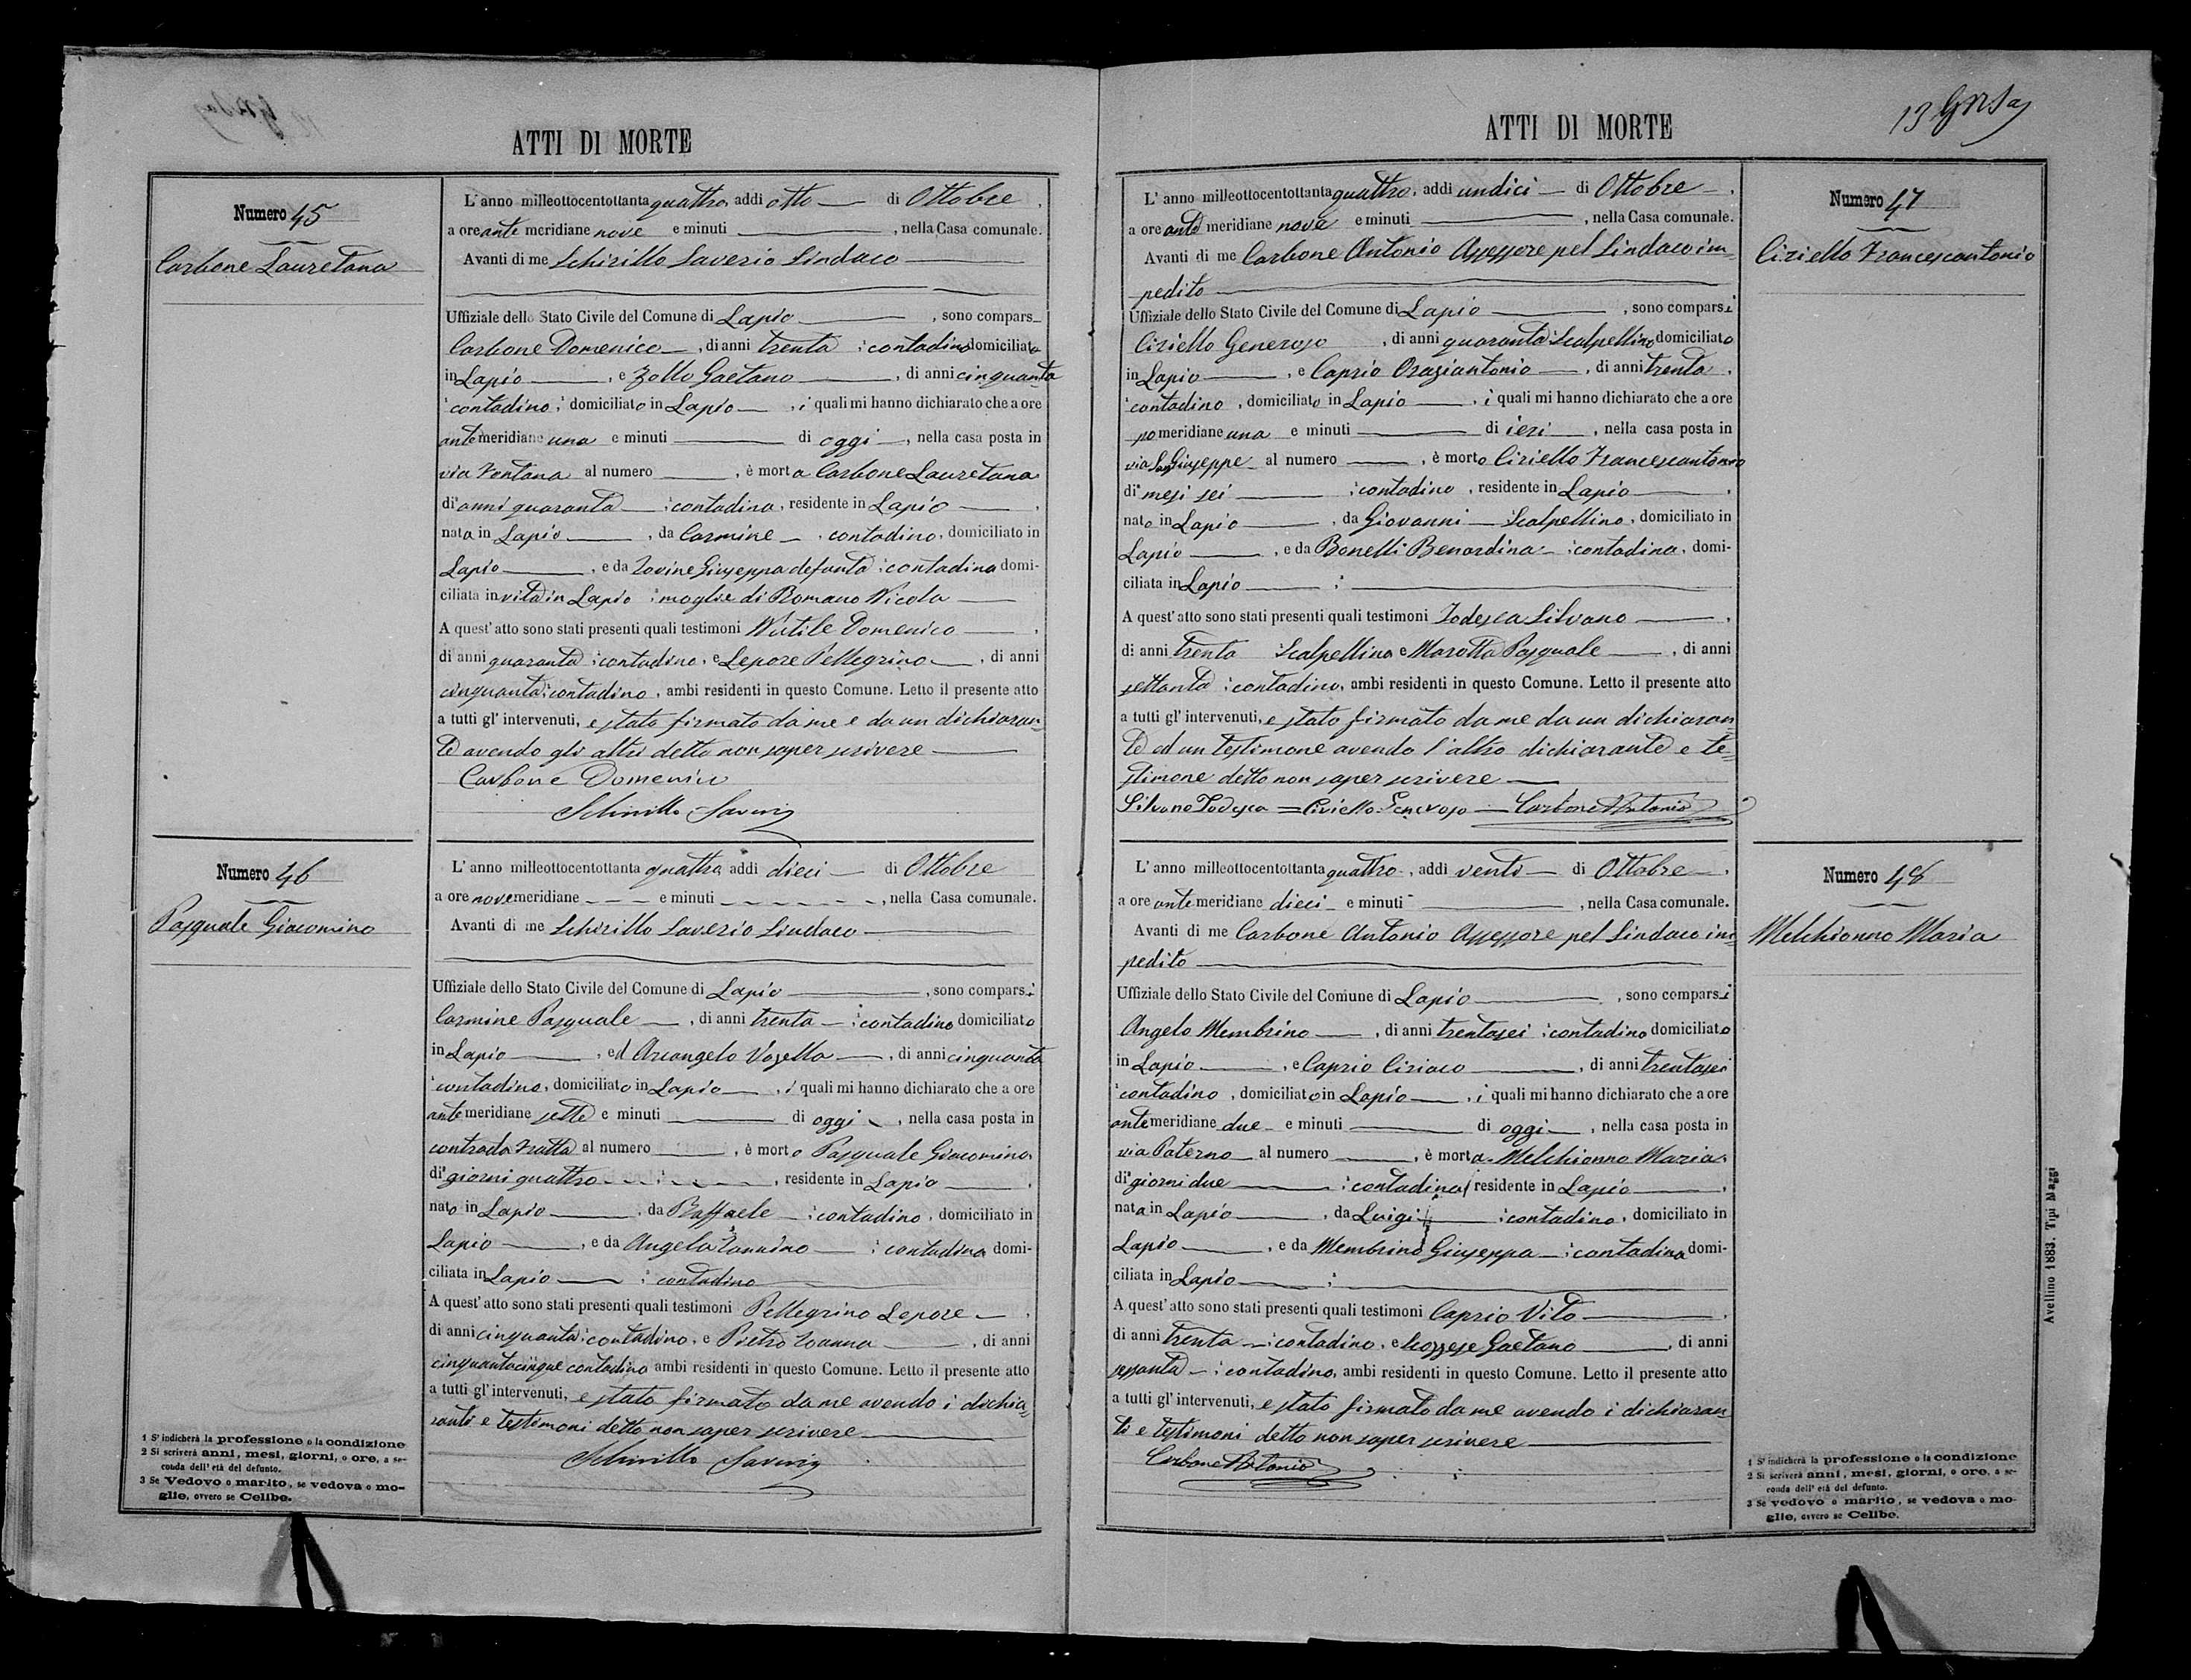 ATTI DI MORTE
Numero 45
Carbone Lauretana
L'anno milleottocentottanta quattro, addi otto di Ottobre,
a ore ante meridiane nove e minuti , nella Casa comunale.
Avanti di me Schirillo Saverio Sindaco
Uffiziale dello Stato Civile del Comune di Lapio , sono compars
Carbone Domenico , di anni trenta contadino domiciliato
in Lapio , e Zollo Gaetano , di anni cinquanta
contadino, domiciliato in Lapio , i quali mi hanno dichiarato che a ore
ante meridiane una e minuti di oggi , nella casa posta in
via Fontana al numero , è morta Carbone Lauretana
di anni quaranta contadina, residente in Lapio ,
nata in Lapio , da Carmine , contadino, domiciliato in
Lapio , e da Iovine Giuseppa defunta contadina domi-
ciliata in vita in Lapio moglie di Romano Nicola
A quest'atto sono stati presenti quali testimoni Nutile Domenico ,
di anni quaranta contadino, e Lepore Pellegrino , di anni
cinquanta contadino, ambi residenti in questo Comune. Letto il presente atto
a tutti gl'intervenuti, e stato firmato da me e da un dichiaran-
te avendo gli altri detto non saper scrivere
Carbone Domenico
Schirillo Saverio
Numero 46
Pasquale Giacomino
L'anno milleottocentottanta quattro, addi dieci di Ottobre
a ore nove meridiane e minuti , nella Casa comunale.
Avanti di me Schirillo Saverio Sindaco
Uffiziale dello Stato Civile del Comune di Lapio , sono comparsi
Carmine Pasquale , di anni trenta contadino domiciliato
in Lapio , ed Arcangelo Vozella , di anni cinquanta
contadino, domiciliato in Lapio , i quali mi hanno dichiarato che a ore
ante meridiane sette e minuti di oggi , nella casa posta in
contrada Fratta al numero , è morto Pasquale Giacomino
di giorni quattro , residente in Lapio ,
nato in Lapio , da Raffaele contadino, domiciliato in
Lapio , e da Angela Iannino contadina domi-
ciliata in Lapio contadino
A quest'atto sono stati presenti quali testimoni Pellegrino Lepore ,
di anni cinquanta contadino, e Pietro Ioanna , di anni
cinquantacinque contadino ambi residenti in questo Comune. Letto il presente atto
a tutti gl'intervenuti, e stato firmato da me avendo i dichia-
ranti e testimoni detto non saper scrivere
Schirillo Saverio
1 S'indicherà la professione o la condizione
2 Si scriverà anni, mesi, giorni, o ore, a se-
conda dell'età del defunto.
3 Se Vedovo o marito, se vedova o mo-
glie, ovvero se Celibe.
ATTI DI MORTE
13
L'anno milleottocentottanta quattro, addi undici di Ottobre ,
a ore ante meridiane nove e minuti , nella Casa comunale.
Avanti di me Carbone Antonio Assessore pel Sindaco im-
pedito
Uffiziale dello Stato Civile del Comune di Lapio , sono comparsi
Ciriello Generoso , di anni quaranta Scalpellino domiciliato
in Lapio , e Caprio Oraziantonio , di anni trenta ,
contadino, domiciliato in Lapio , i quali mi hanno dichiarato che a ore
po meridiane una e minuti di ieri , nella casa posta in
via San Giuseppe al numero , è morto Ciriello Francescantonio
di mesi sei contadino, residente in Lapio ,
nato in Lapio , da Giovanni Scalpellino, domiciliato in
Lapio , e da Bonelli Benardina contadina, domi-
ciliata in Lapio
A quest'atto sono stati presenti quali testimoni Todesca Silvano ,
di anni trenta Scalpellino e Marotta Pasquale , di anni
settanta contadino, ambi residenti in questo Comune. Letto il presente atto
a tutti gl'intervenuti, e stato firmato da me da un dichiaran
te ed un testimone avendo l'altro dichiarante e te-
stimone detto non saper scrivere
Silvano Todesca = Ciriello Generoso Carbone Antonio
Numero 47
Ciriello Francescantonio
L'anno milleottocentottanta quattro, addi venti di Ottobre ,
a ore ante meridiane dieci e minuti , nella Casa comunale.
Avanti di me Carbone Antonio Assessore pel Sindaco im-
pedito
Uffiziale dello Stato Civile del Comune di Lapio , sono comparsi
Angelo Membrino , di anni trentasei contadino domiciliato
in Lapio , e Caprio Ciriaco , di anni trentasei
contadino, domiciliato in Lapio , i quali mi hanno dichiarato che a ore
ante meridiane due e minuti di oggi , nella casa posta in
via Paterno al numero , è morta Melchionno Maria
di giorni due contadina, residente in Lapio ,
nata in Lapio , da Luigi contadino, domiciliato in
Lapio , e da Membrino Giuseppa contadina domi-
ciliata in Lapio
A quest'atto sono stati presenti quali testimoni Caprio Vito ,
di anni trenta contadino, e Scozzese Gaetano , di anni
sessanta contadino, ambi residenti in questo Comune. Letto il presente atto
a tutti gl'intervenuti, e stato firmato da me avendo i dichiaran
ti e testimoni detto non saper scrivere
Carbone Antonio
Numero 48
Melchionno Maria
1 S'indicherà la professione o la condizione
2 Si scriverà anni, mesi, giorni, o ore, a se-
conda dell'età del defunto.
3 Se vedovo o marito, se vedova o mo-
glie, ovvero se Celibe.
Avellino 1883. Tipi Maggi